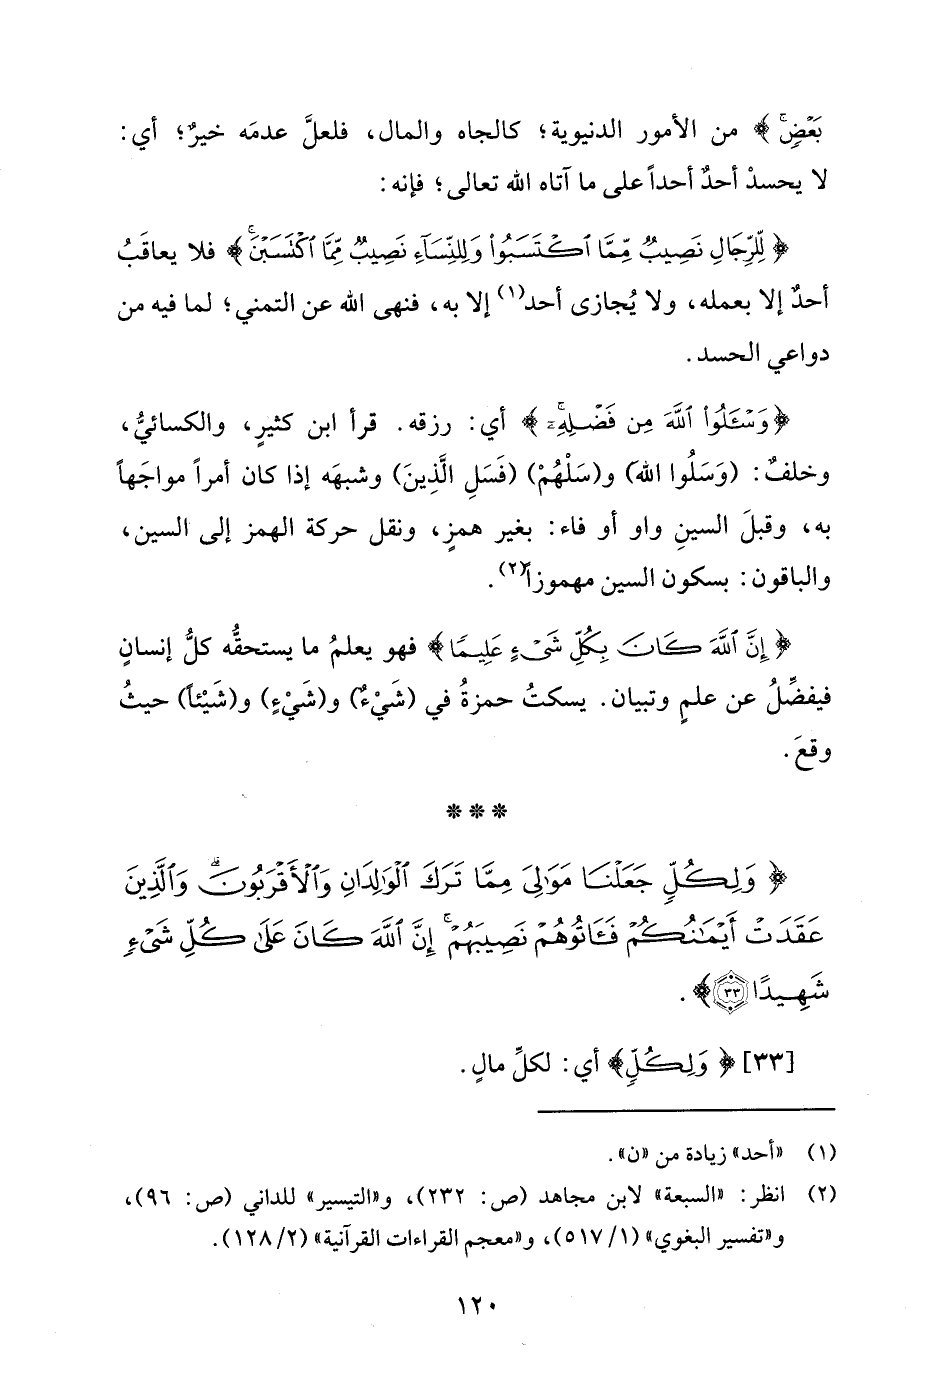 بَعْضٍۚ ﴾ من الأمور الدنيوية؛ كالجاه والمال، فلعلَّ عدمَه خيرٌ؛ أي:
لا يحسدْ أحدٌ أحداً على ما آتاه الله تعالى؛ فإنه:
﴿ لِّلرِّجَالِ نَصِيبٌ مِّمَّا ٱكْتَسَبُوا۟ وَلِلنِّسَآءِ نَصِيبٌ مِّمَّا ٱكْتَسَبْنَۚ ﴾ فلا يعاقَبُ
أحدٌ إلا بعمله، ولا يُجازى أحد(١) إلا به، فنهى الله عن التمني؛ لما فيه من
دواعي الحسد.
﴿ وَسْـَٔلُوا۟ ٱللَّهَ مِن فَضْلِهِۦٓۚ ﴾ أي: رزقه. قرأ ابن كثيرٍ، والكسائيُّ،
وخلفٌ: (وَسَلُوا اللهَ) و(سَلْهُمْ) (فَسَلِ الَّذِينَ) وشبهَه إذا كان أمراً مواجَهاً
به، وقبلَ السينِ واو أو فاء: بغير همزٍ، ونقل حركة الهمز إلى السين،
والباقون: بسكون السين مهموزاً(٢).
﴿ إِنَّ ٱللَّهَ كَانَ بِكُلِّ شَىْءٍ عَلِيمًا ﴾ فهو يعلمُ ما يستحقُّه كلُّ إنسانٍ
فيفضِّلُ عن علمٍ وتبيان. يسكتُ حمزةُ في (شَيْءٌ) و(شَيْءٍ) و(شَيْئاً) حيثُ
وقعَ.
* * *
﴿ وَلِكُلٍّ جَعَلْنَا مَوَٰلِىَ مِمَّا تَرَكَ ٱلْوَٰلِدَانِ وَٱلْأَقْرَبُونَۗ وَٱلَّذِينَ
عَقَدَتْ أَيْمَٰنُكُمْ فَـَٔاتُوهُمْ نَصِيبَهُمْۚ إِنَّ ٱللَّهَ كَانَ عَلَىٰ كُلِّ شَىْءٍ
شَهِيدًا ٣٣ ﴾.
[٣٣] ﴿ وَلِكُلٍّ ﴾ أي: لكلِّ مالٍ.
(١) «أحد» زيادة من «ن».
(٢) انظر: «السبعة» لابن مجاهد (ص: ٢٣٢)، و«التيسير» للداني (ص: ٩٦)،
و«تفسير البغوي» (١/ ٥١٧)، و«معجم القراءات القرآنية» (٢/ ١٢٨).
١٢٠